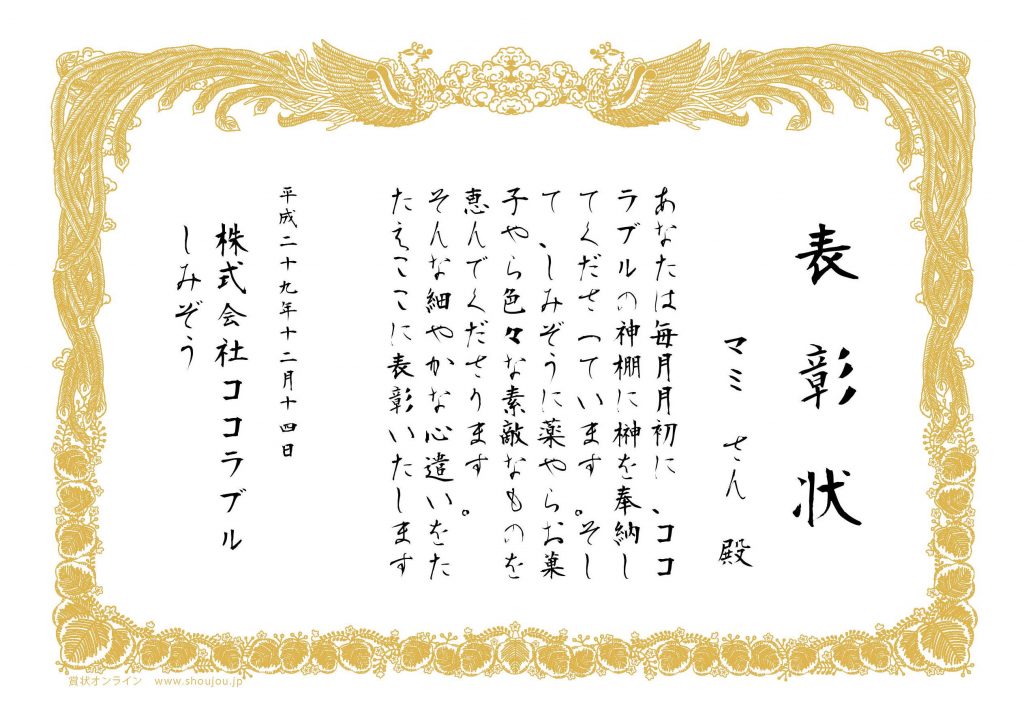 表彰状
マミ さん 殿
あなたは毎月月初に、ココ
ラブルの神棚に榊を奉納し
てくださっています。そし
て、しみぞうに薬やらお菓
子やら色々な素敵なものを
恵んでくださります。
そんな細やかな心遣いをた
たえここに表彰いたします
平成二十九年十二月十四日
株式会社ココラブル
しみぞう
賞状オンライン www.shoujou.jp